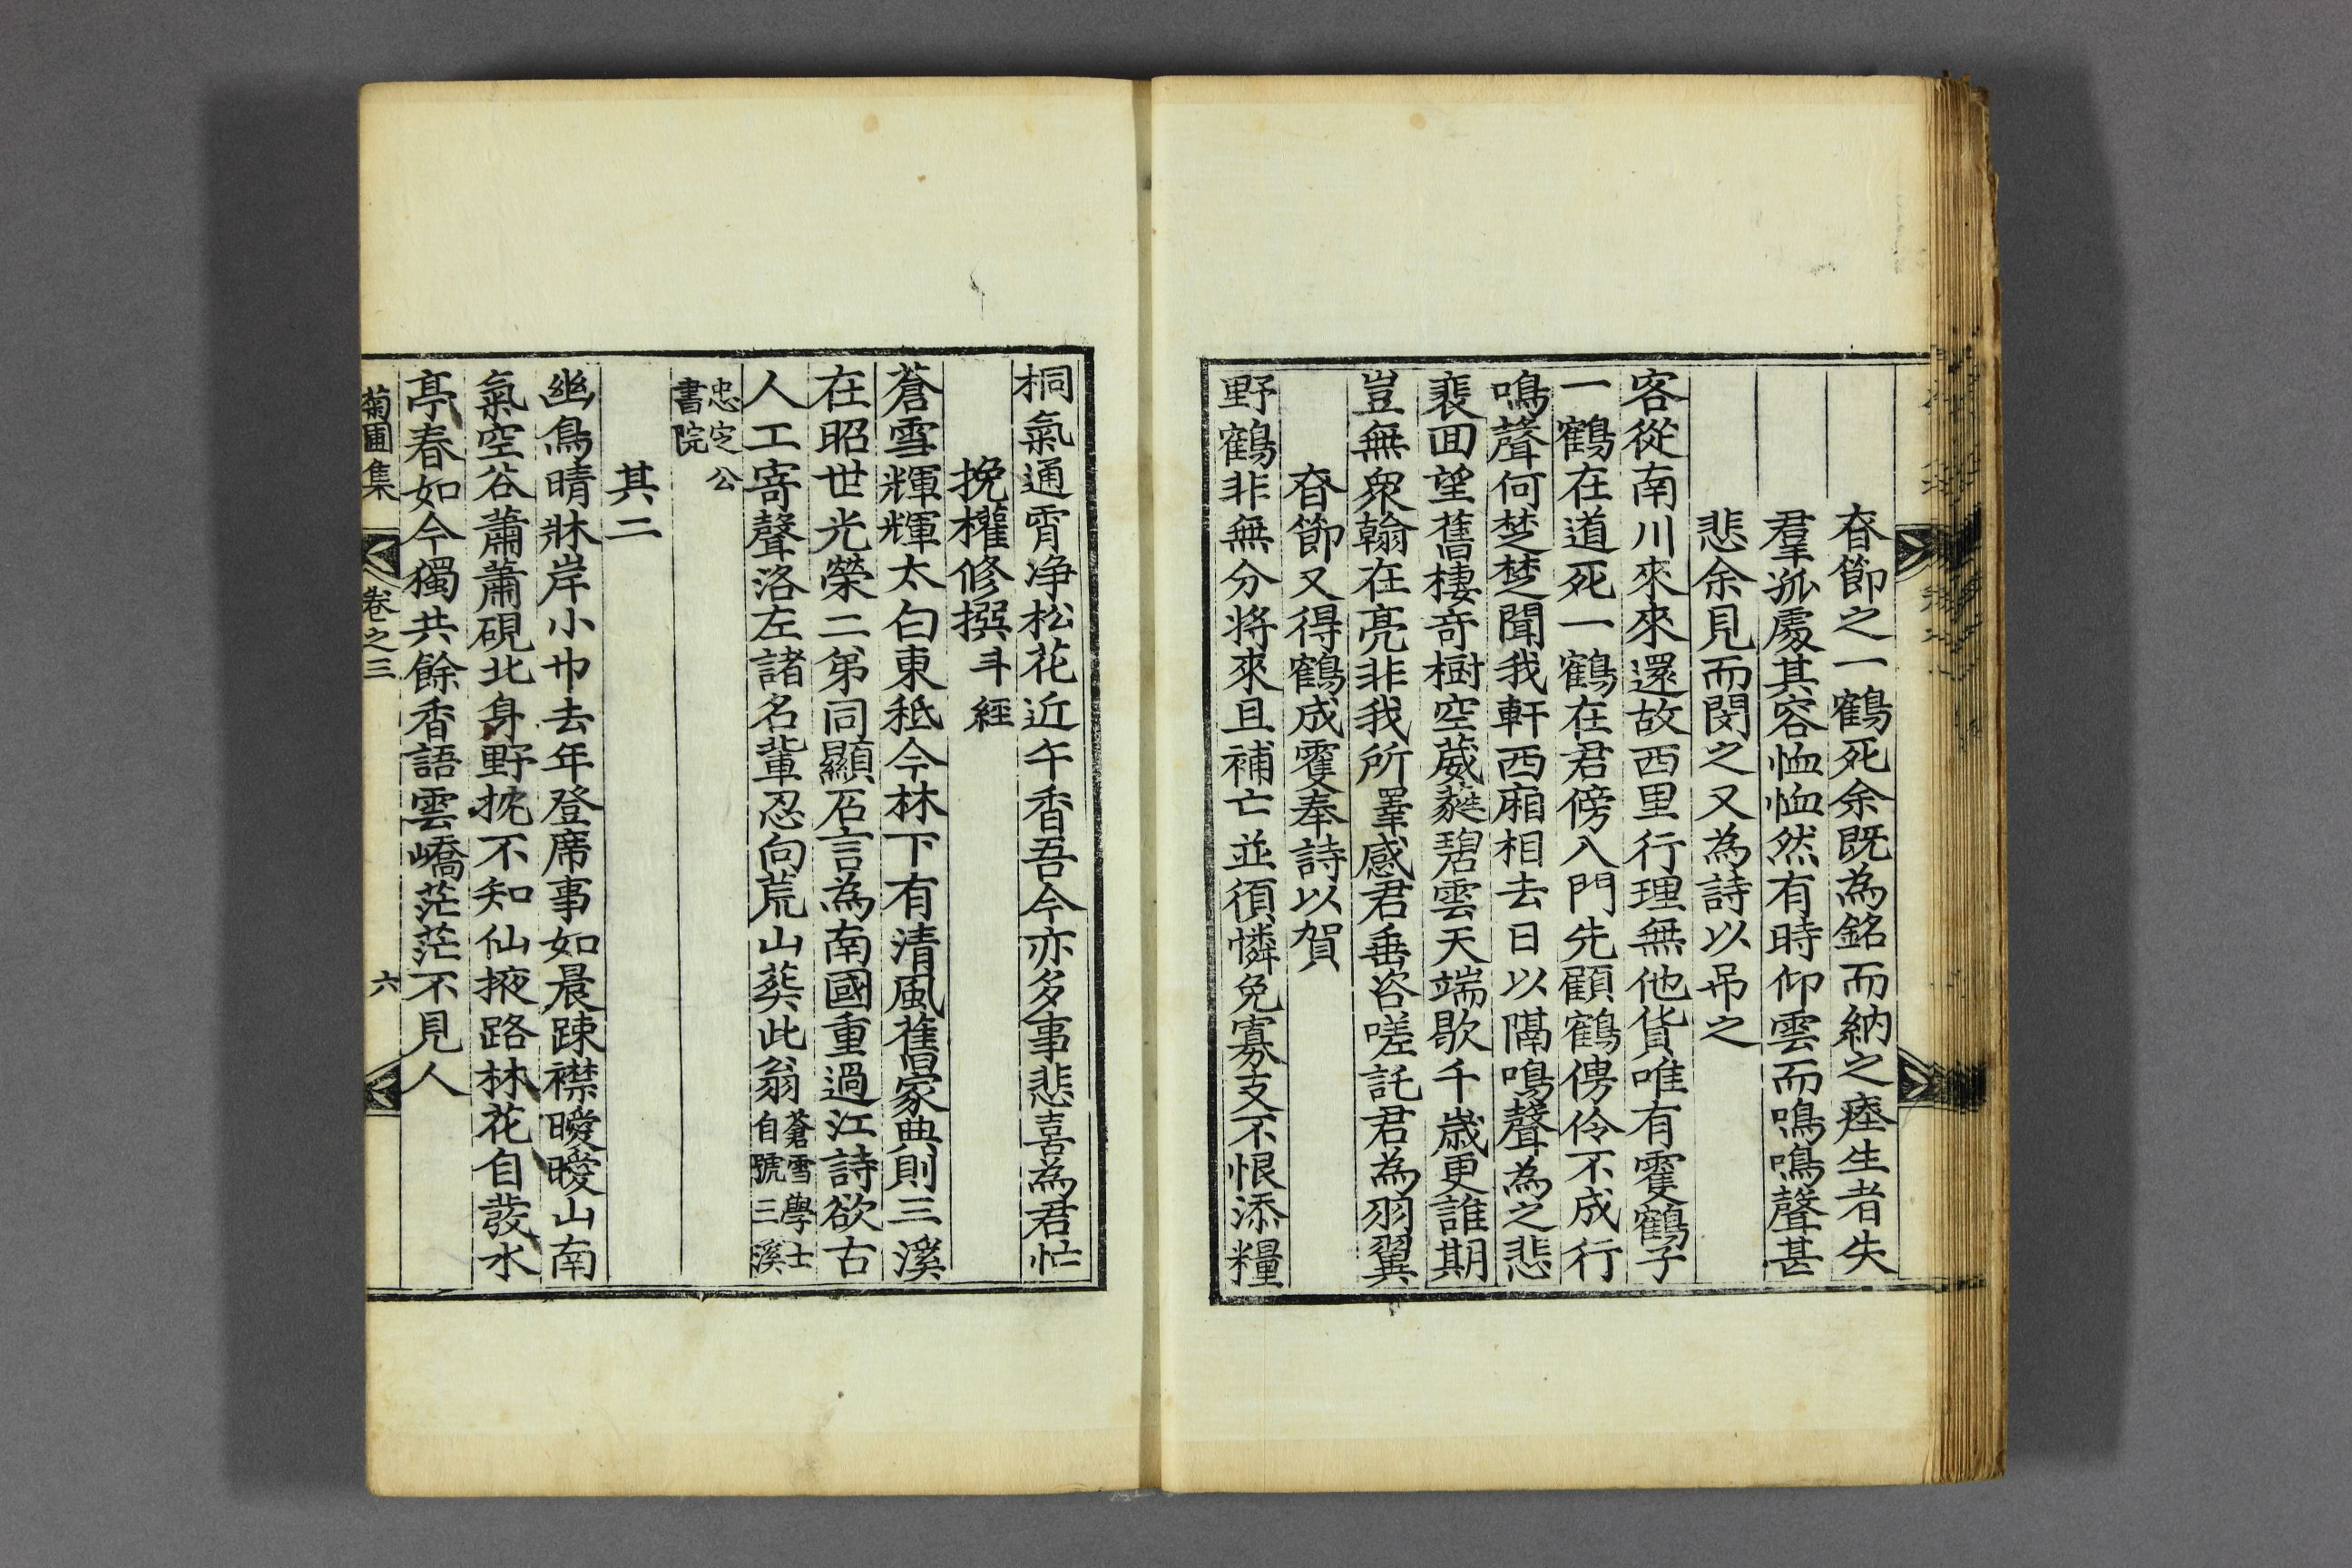 春節之一鶴死余既為銘而納之瘞生者失
羣孤處其容恤恤然有時仰雲而鳴鳴聲甚
悲余見而閔之又為詩以吊之
客從南川來來還故西里行理無他貨唯有䨥鶴子
一鶴在道死一鶴在君傍入門先顧鶴俜伶不成行
鳴聲何楚楚聞我軒西廂相去日以隔鳴聲為之悲
裴回望舊棲奇樹空葳蕤碧雲天端歇千歲更誰期
豈無衆翰在亮非我所羣感君垂咨嗟託君為羽翼
春節又得鶴成䨥奉詩以賀
野鶴非無分將來且補亡並須憐免寡支不恨添糧
桐氣通宵净松花近午香吾今亦多事悲喜為君忙
挽權修撰斗經
蒼雪輝輝太白東秪今林下有清風舊家典則三溪
在昭世光榮二弟同顯石言為南國重過江詩欲古
人工寄聲洛左諸名輩忍向荒山葬此翁蒼雪學士自號三溪
忠定公書院
其二
幽鳥晴牀岸小巾去年登席事如晨踈襟曖曖山南
氣空谷蕭蕭硯北身野枕不知仙掖路林花自發水
亭春如今獨共餘香語雲嶠茫茫不見人
菊圃集 卷之三 六